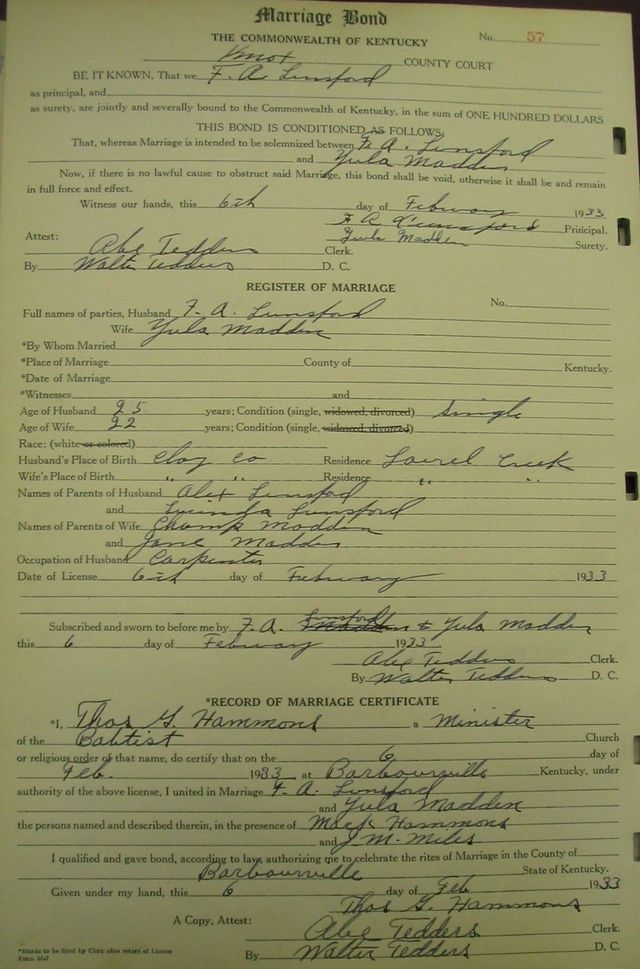 Marriage Bond
THE COMMONWEALTH OF KENTUCKY No. 57
Knox COUNTY COURT
BE IT KNOWN, That we F. A. Lunsford
as principal, and
as surety, are jointly and severally bound to the Commonwealth of Kentucky, in the sum of ONE HUNDRED DOLLARS
THIS BOND IS CONDITIONED AS FOLLOWS:
That, whereas Marriage is intended to be solemnized between F. A. Lunsford
and Yula Madden
Now, if there is no lawful cause to obstruct said Marriage, this bond shall be void, otherwise it shall be and remain
in full force and effect.
Witness our hands, this 6th day of February 1933
F A Lunsford Principal.
Attest: Yula Madden Surety.
Abe Tedders Clerk.
By Walter Tedders D. C.
REGISTER OF MARRIAGE
No.
Full names of parties, Husband F. A. Lunsford
Wife Yula Madden
*By Whom Married
*Place of Marriage County of Kentucky.
*Date of Marriage
*Witnesses and
Age of Husband 25 years; Condition (single, widowed, divorced) Single
Age of Wife 22 years; Condition (single, widowed, divorced)
Race: (white or colored)
Husband's Place of Birth Clay Co Residence Laurel Creek
Wife's Place of Birth " " Residence " "
Names of Parents of Husband Alex Lunsford
and Lucinda Lunsford
Names of Parents of Wife Champ Madden
and Jane Madden
Occupation of Husband Carpenter
Date of License 6th day of February 1933
Subscribed and sworn to before me by F. A. Madden Lunsford & Yula Madden
this 6 day of February 1933
Abe Tedders Clerk.
By Walter Tedders D. C.
*RECORD OF MARRIAGE CERTIFICATE
*I, Thos G. Hammons a Minister
of the Babtist Church
or religious order of that name, do certify that on the 6 day of
Feb. 1933 at Barbourville Kentucky, under
authority of the above license, I united in Marriage F. A. Lunsford
and Yula Madden
the persons named and described therein, in the presence of Mack Hammons
and J. M. Miles
I qualified and gave bond, according to law, authorizing me to celebrate the rites of Marriage in the County of
Barbourville State of Kentucky.
Given under my hand, this 6 day of Feb 1933
Thos G. Hammons
A Copy, Attest: Abe Tedders Clerk.
By Walter Tedders D. C.
*Blanks to be filled by Clerk after return of License